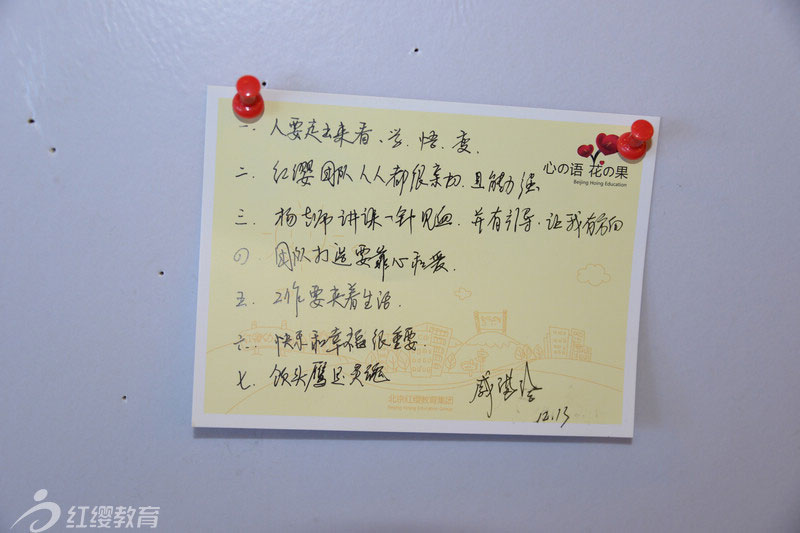 心の语 花の果
Beijing Hoing Education
一. 人要走出来看、学、悟、变.
二. 红缨团队人人都很亲切,且能力强
三. 杨老师讲课一针见血.并有引导,让我有方向
四. 团队打造要靠心和爱.
五. 工作要夹着生活.
六. 快乐和幸福很重要.
七. 领头鹰是灵魂
12.13
北京红缨教育集团
Beijing Hoing Education Group
红缨教育